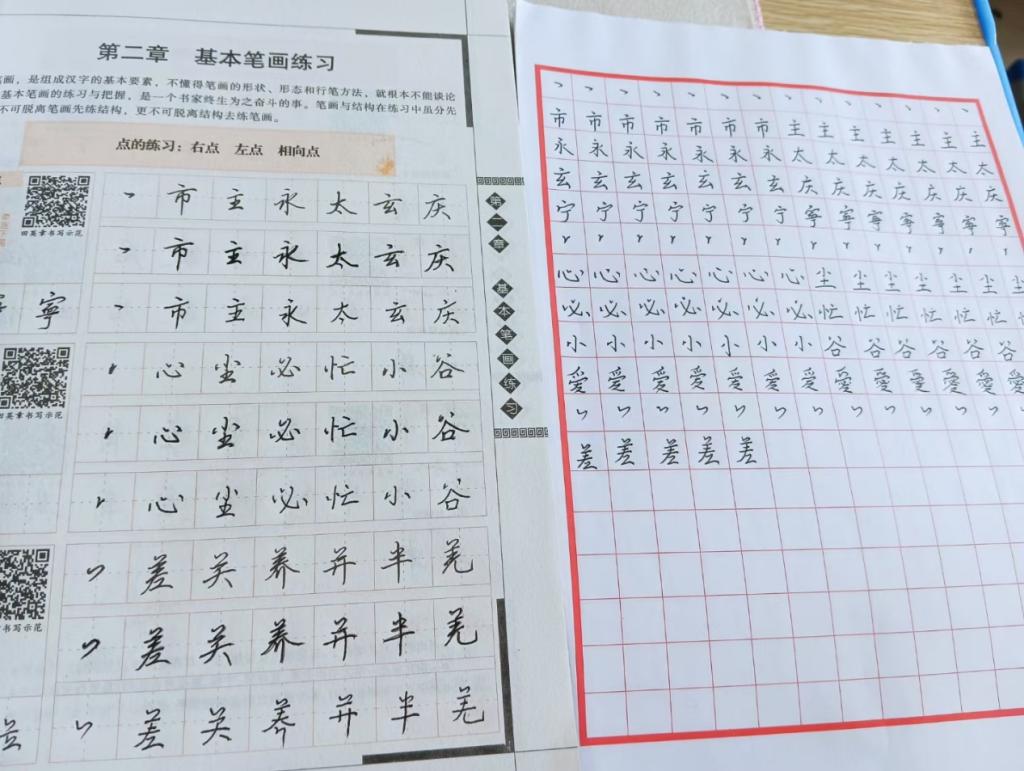 第二章 基本笔画练习
笔画，是组成汉字的基本要素，不懂得笔画的形状、形态和行笔方法，就根本不能谈论
基本笔画的练习与把握，是一个书家终生为之奋斗的事。笔画与结构在练习中虽分先
不可脱离笔画先练结构，更不可脱离结构去练笔画。
点的练习：右点 左点 相向点
田英章书写示范
丶 市 主 永 太 玄 庆
丶 市 主 永 太 玄 庆
寧 丶 市 主 永 太 玄 庆
田英章书写示范
心 尘 必 忙 小 谷
心 尘 必 忙 小 谷
心 尘 必 忙 小 谷
书写示范
差 关 养 并 半 羌
差 关 养 并 半 羌
差 关 养 并 半 羌
第二章 基本笔画练习
丶 丶 丶 丶 丶 丶 丶 丶 丶 丶 丶 丶 丶
市 市 市 市 市 市 市 主 主 主 主 主 主
永 永 永 永 永 永 永 太 太 太 太 太 太
玄 玄 玄 玄 玄 玄 玄 庆 庆 庆 庆 庆 庆
宁 宁 宁 宁 宁 宁 宁 寧 寧 寧 寧 寧 寧
心 心 心 心 心 心 心 尘 尘 尘 尘 尘 尘
必 必 必 必 必 必 必 忙 忙 忙 忙 忙 忙
小 小 小 小 小 小 小 谷 谷 谷 谷 谷 谷
愛 愛 愛 愛 愛 愛 愛 愛 愛 愛 愛 愛 愛
差 差 差 差 差